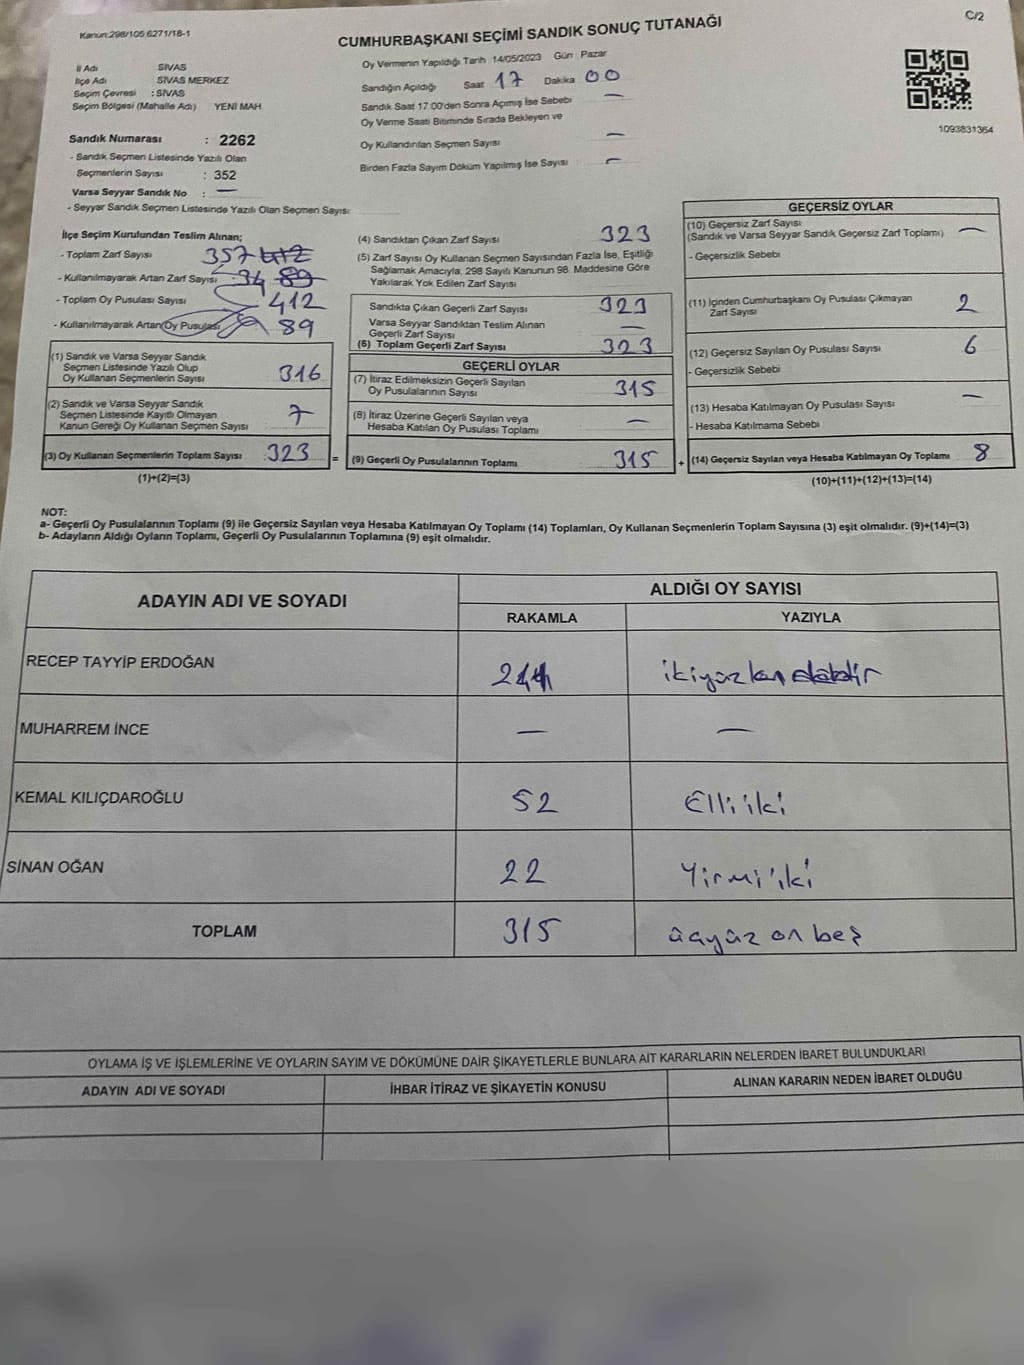 Kanun:298/105 6271/18-1
C/2
CUMHURBAŞKANI SEÇİMİ SANDIK SONUÇ TUTANAĞI
İl Adı SİVAS
İlçe Adı SİVAS MERKEZ
Seçim Çevresi : SİVAS
Seçim Bölgesi (Mahalle Adı) YENİ MAH.
Oy Vermenin Yapıldığı Tarih 14/05/2023 Gün Pazar
Sandığın Açıldığı Saat 17 Dakika 00
Sandık Saat 17:00'den Sonra Açımış İse Sebebi —
Oy Verme Saati Bitiminde Sırada Bekleyen ve
Oy Kullandırılan Seçmen Sayısı —
Birden Fazla Sayım Döküm Yapılmış İse Sayısı —
1093831364
Sandık Numarası : 2262
- Sandık Seçmen Listesinde Yazılı Olan
Seçmenlerin Sayısı : 352
Varsa Seyyar Sandık No : —
- Seyyar Sandık Seçmen Listesinde Yazılı Olan Seçmen Sayısı:
İlçe Seçim Kurulundan Teslim Alınan;
- Toplam Zarf Sayısı 357 412
- Kullanılmayarak Artan Zarf Sayısı 34 89
- Toplam Oy Pusulası Sayısı 412
- Kullanılmayarak Artan Oy Pusulası 89
(1) Sandık ve Varsa Seyyar Sandık
Seçmen Listesinde Yazılı Olup
Oy Kullanan Seçmenlerin Sayısı 316
(2) Sandık ve Varsa Seyyar Sandık
Seçmen Listesinde Kayıtlı Olmayan
Kanun Gereği Oy Kullanan Seçmen Sayısı 7
(3) Oy Kullanan Seçmenlerin Toplam Sayısı 323 =
(1)+(2)=(3)
(4) Sandıktan Çıkan Zarf Sayısı 323
(5) Zarf Sayısı Oy Kullanan Seçmen Sayısından Fazla İse, Eşitliği
Sağlamak Amacıyla, 298 Sayılı Kanunun 98. Maddesine Göre
Yakılarak Yok Edilen Zarf Sayısı
Sandıkta Çıkan Geçerli Zarf Sayısı 323
Varsa Seyyar Sandıktan Teslim Alınan
Geçerli Zarf Sayısı —
(6) Toplam Geçerli Zarf Sayısı 323
GEÇERLİ OYLAR
(7) İtiraz Edilmeksizin Geçerli Sayılan
Oy Pusulalarının Sayısı 315
(8) İtiraz Üzerine Geçerli Sayılan veya
Hesaba Katılan Oy Pusulası Toplamı —
(9) Geçerli Oy Pusulalarının Toplamı 315 +
GEÇERSİZ OYLAR
(10) Geçersiz Zarf Sayısı
(Sandık ve Varsa Seyyar Sandık Geçersiz Zarf Toplamı) —
- Geçersizlik Sebebi
(11) İçinden Cumhurbaşkanı Oy Pusulası Çıkmayan
Zarf Sayısı 2
(12) Geçersiz Sayılan Oy Pusulası Sayısı 6
- Geçersizlik Sebebi
(13) Hesaba Katılmayan Oy Pusulası Sayısı —
- Hesaba Katılmama Sebebi
(14) Geçersiz Sayılan veya Hesaba Katılmayan Oy Toplamı 8
(10)+(11)+(12)+(13)=(14)
NOT:
a- Geçerli Oy Pusulalarının Toplamı (9) ile Geçersiz Sayılan veya Hesaba Katılmayan Oy Toplamı (14) Toplamları, Oy Kullanan Seçmenlerin Toplam Sayısına (3) eşit olmalıdır. (9)+(14)=(3)
b- Adayların Aldığı Oyların Toplamı, Geçerli Oy Pusulalarının Toplamına (9) eşit olmalıdır.
ADAYIN ADI VE SOYADI
ALDIĞI OY SAYISI
RAKAMLA YAZIYLA
RECEP TAYYİP ERDOĞAN
MUHARREM İNCE — —
KEMAL KILIÇDAROĞLU 52 Elli iki
SİNAN OĞAN 22 Yirmi iki
TOPLAM 315 üçyüz on beş
OYLAMA İŞ VE İŞLEMLERİNE VE OYLARIN SAYIM VE DÖKÜMÜNE DAİR ŞİKAYETLERLE BUNLARA AİT KARARLARIN NELERDEN İBARET BULUNDUKLARI
ADAYIN ADI VE SOYADI İHBAR İTİRAZ VE ŞİKAYETİN KONUSU ALINAN KARARIN NEDEN İBARET OLDUĞU